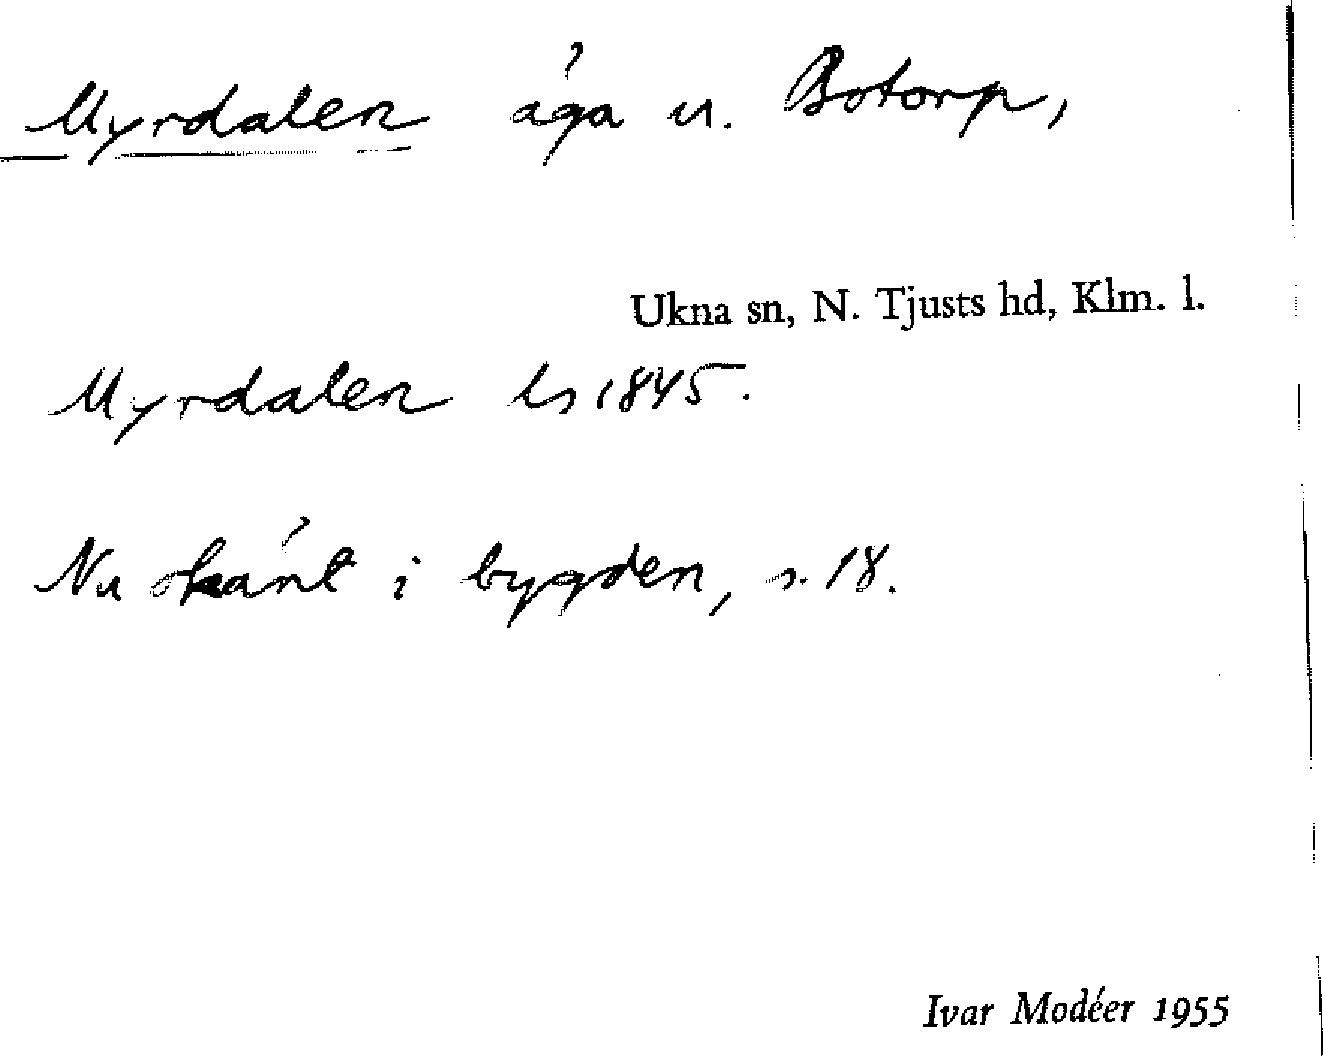 Myrdalen äga u. Botorp,
Ukna sn, N. Tjusts hd, Klm. l.
Myrdalen ls 1845.
Nu okänt i bygden, s. 18.
Ivar Modéer 1955